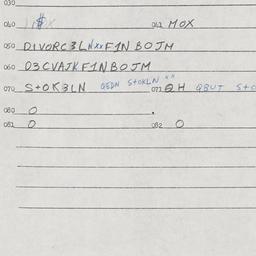 030
040 $ 041 MOX
050 DIVORC3LNxxF1NBOJM
060 D3CVAJKF1NBOJM
070 S+OK3LN QEDN S+OKLN xx 071 QH QBUT S+O
080 O
081 O 082 O